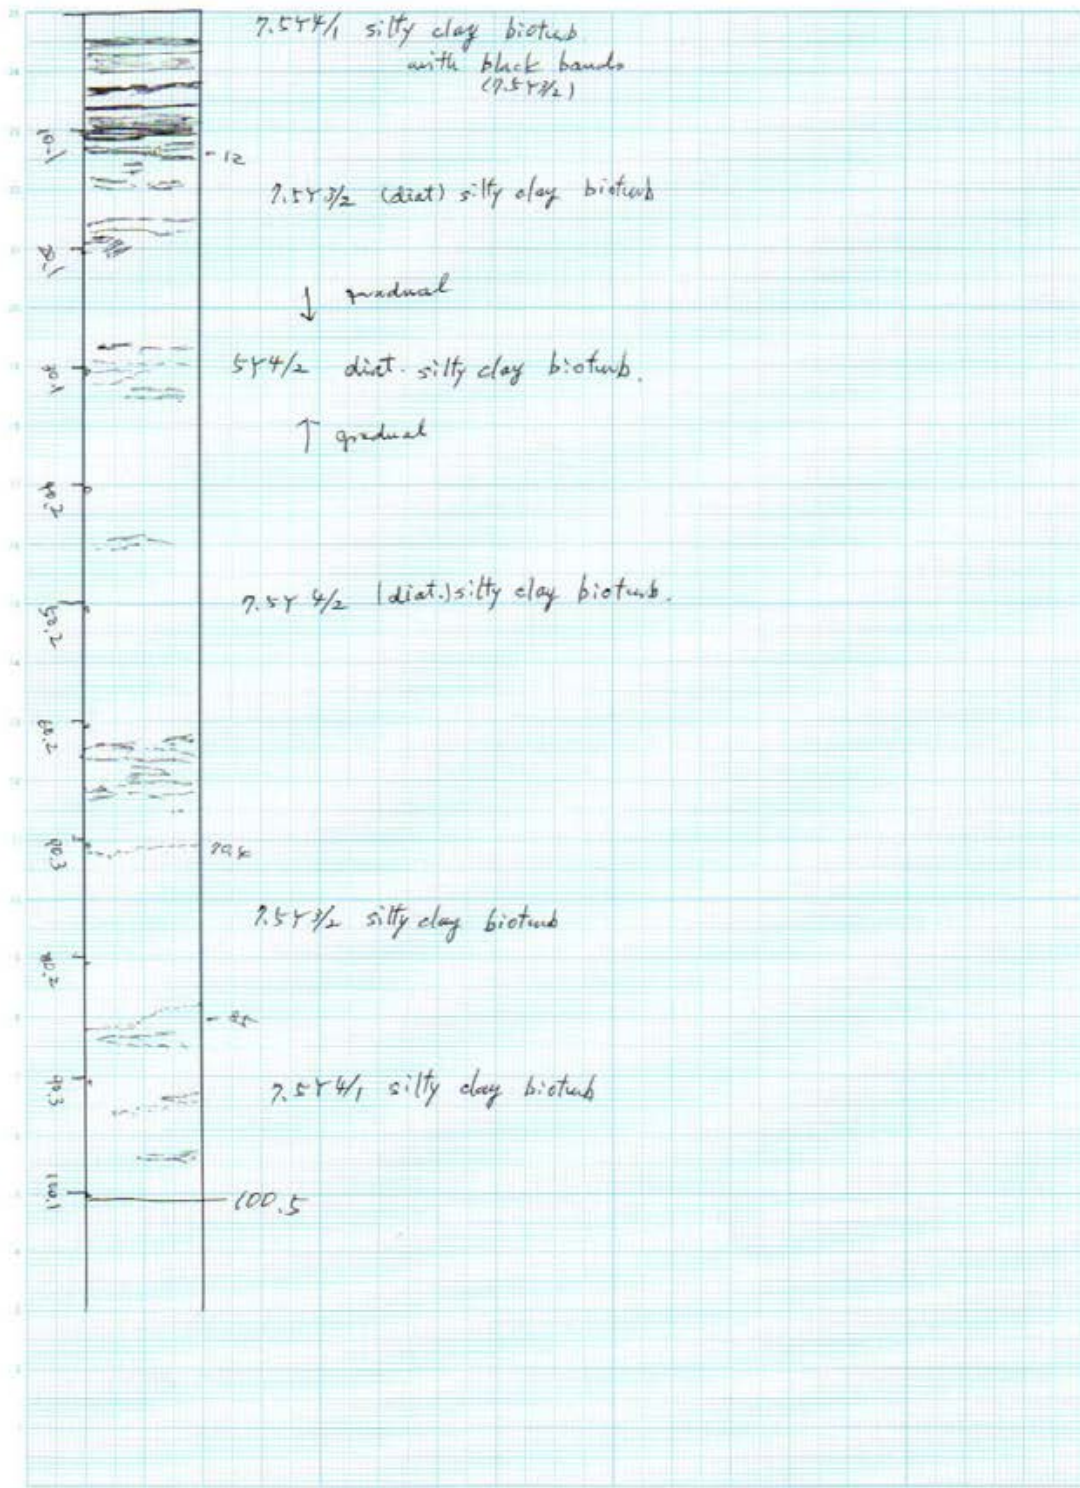 7.5Y4/1 silty clay bioturb
with black bands
(7.5Y3/2)
10.1
- 12
7.5Y3/2 (diat) silty clay bioturb
20.1
↓ gradual
30.1
5Y4/2 diat. silty clay bioturb.
↑ gradual
40.2
7.5Y 4/2 (diat.) silty clay bioturb.
50.2
60.2
70.3
70.8
7.5Y3/2 silty clay bioturb
80.2
- 85
90.3
7.5Y4/1 silty clay bioturb
100.1
100.5